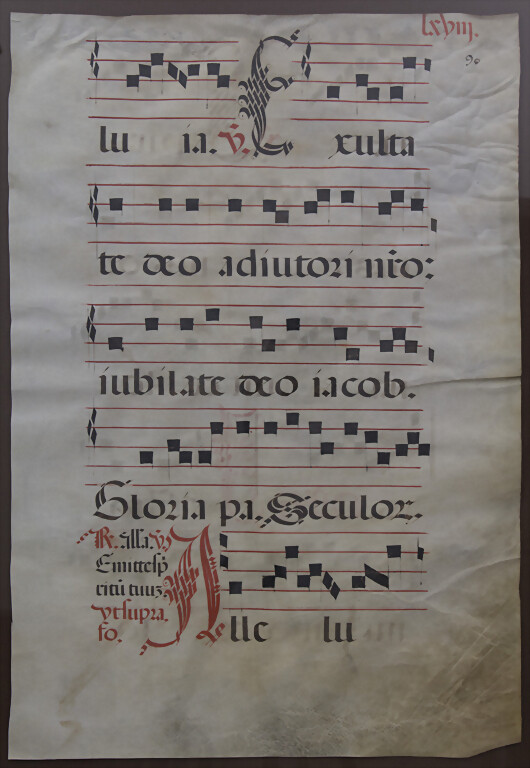 lxviij.
90
lu ia. V. Exulta
te deo adiutori nr̄o:
iubilate deo iacob.
Gloria pa. Seculor.
R. alla V.
Emitte sp̄
ritū tuuz
vt supra
fo.
Alle lu